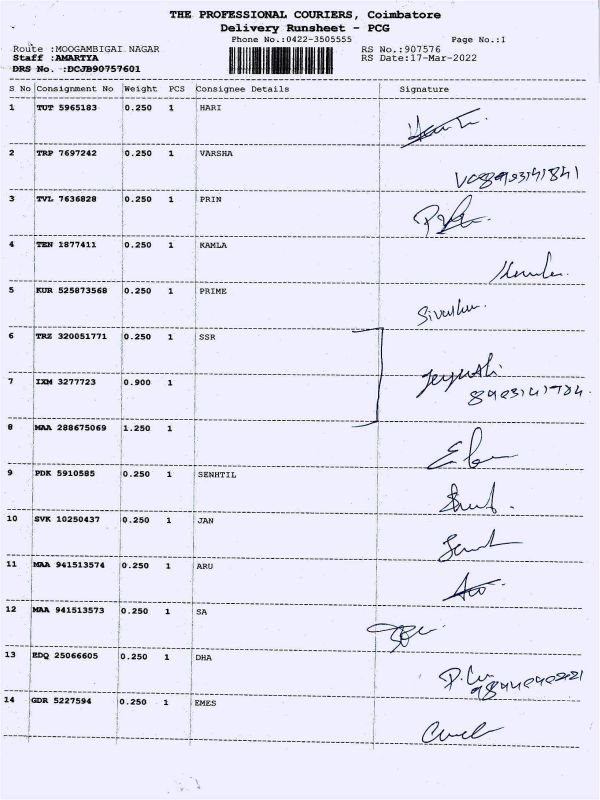 THE PROFESSIONAL COURIERS, Coimbatore
Delivery Runsheet - PCG
Phone No.:0422-3505555 Page No.:1
Route :MOOGAMBIGAI NAGAR RS No.:907576
Staff :AMARTYA RS Date:17-Mar-2022
DRS No. :DCJB90757601
S No Consignment No Weight PCS Consignee Details Signature
1 TUT 5965183 0.250 1 HARI
2 TRP 7697242 0.250 1 VARSHA
3 TVL 7636828 0.250 1 PRIN
4 TEN 1877411 0.250 1 KAMLA
5 KUR 525873568 0.250 1 PRIME
6 TRZ 320051771 0.250 1 SSR
7 IXM 3277723 0.900 1
8 MAA 288675069 1.250 1
9 PDK 5910585 0.250 1 SENHTIL
10 SVK 10250437 0.250 1 JAN
11 MAA 941513574 0.250 1 ARU
12 MAA 941513573 0.250 1 SA
13 EDQ 25066605 0.250 1 DHA
14 GDR 5227594 0.250 1 EMES